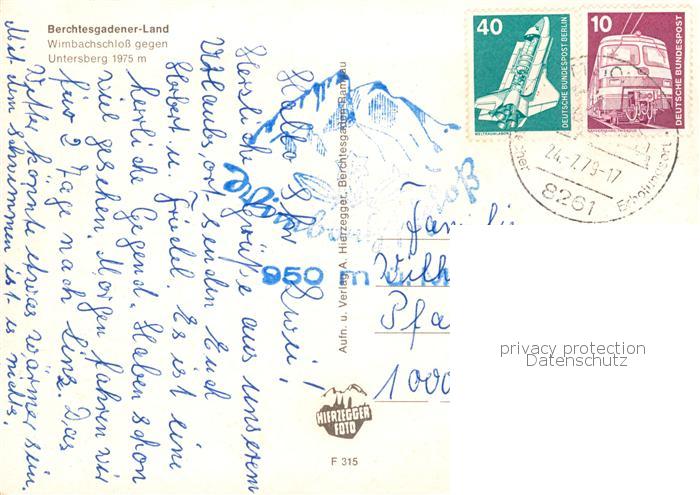 Berchtesgadener-Land
Wimbachschloß gegen
Untersberg 1975 m
Hallo Ihr Zwei!
Herzliche Grüße aus unserem
Urlaubsort senden Euch
Herbert u. Friedel Es ist eine
herliche Gegend. Haben schon
viel gesehen. Morgen fahren wir
für 2 Tage nach Linz. Das
Wetter könnte etwas wärmer sein.
Mit dem schwimmen ist es nichts.
950 m ü. M
Aufn. u. Verlag A. Hierzegger, Berchtesgaden-Ramsau
HIERZEGGER
FOTO
F 315
40
DEUTSCHE BUNDESPOST BERLIN
WELTRAUMLABOR
10
DEUTSCHE BUNDESPOST
24.-7.79-17
8261
Erholungsort
Familie
Wilh
Pfa
1000
privacy protection
Datenschutz